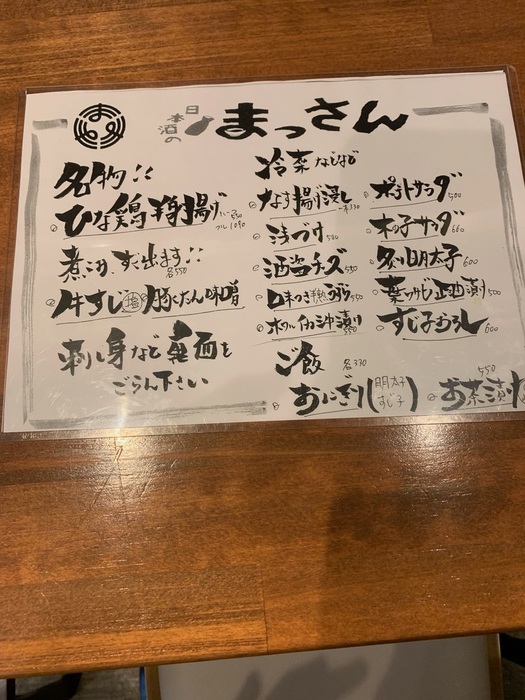 日本酒の まっさん
名物!!
ひな鶏 半身揚げ ハーフ550 フル1090
煮込、すぐ出ます!! 各550
牛すじ 塩 豚くたん味噌
刺し身など裏面を
ごらん下さい
冷菜などなど
なす揚げ浸し 一本330
浅づけ 500
酒盗チーズ 550
味つき
ホタルイカ沖漬け 550
ポテトサラダ 500
木の子サラダ 660
炙り明太子 600
葉ワサビ正油漬け 500
すじ子おろし 600
ご飯 各330
おにぎり(明太子 すじ子)
お茶漬け 550